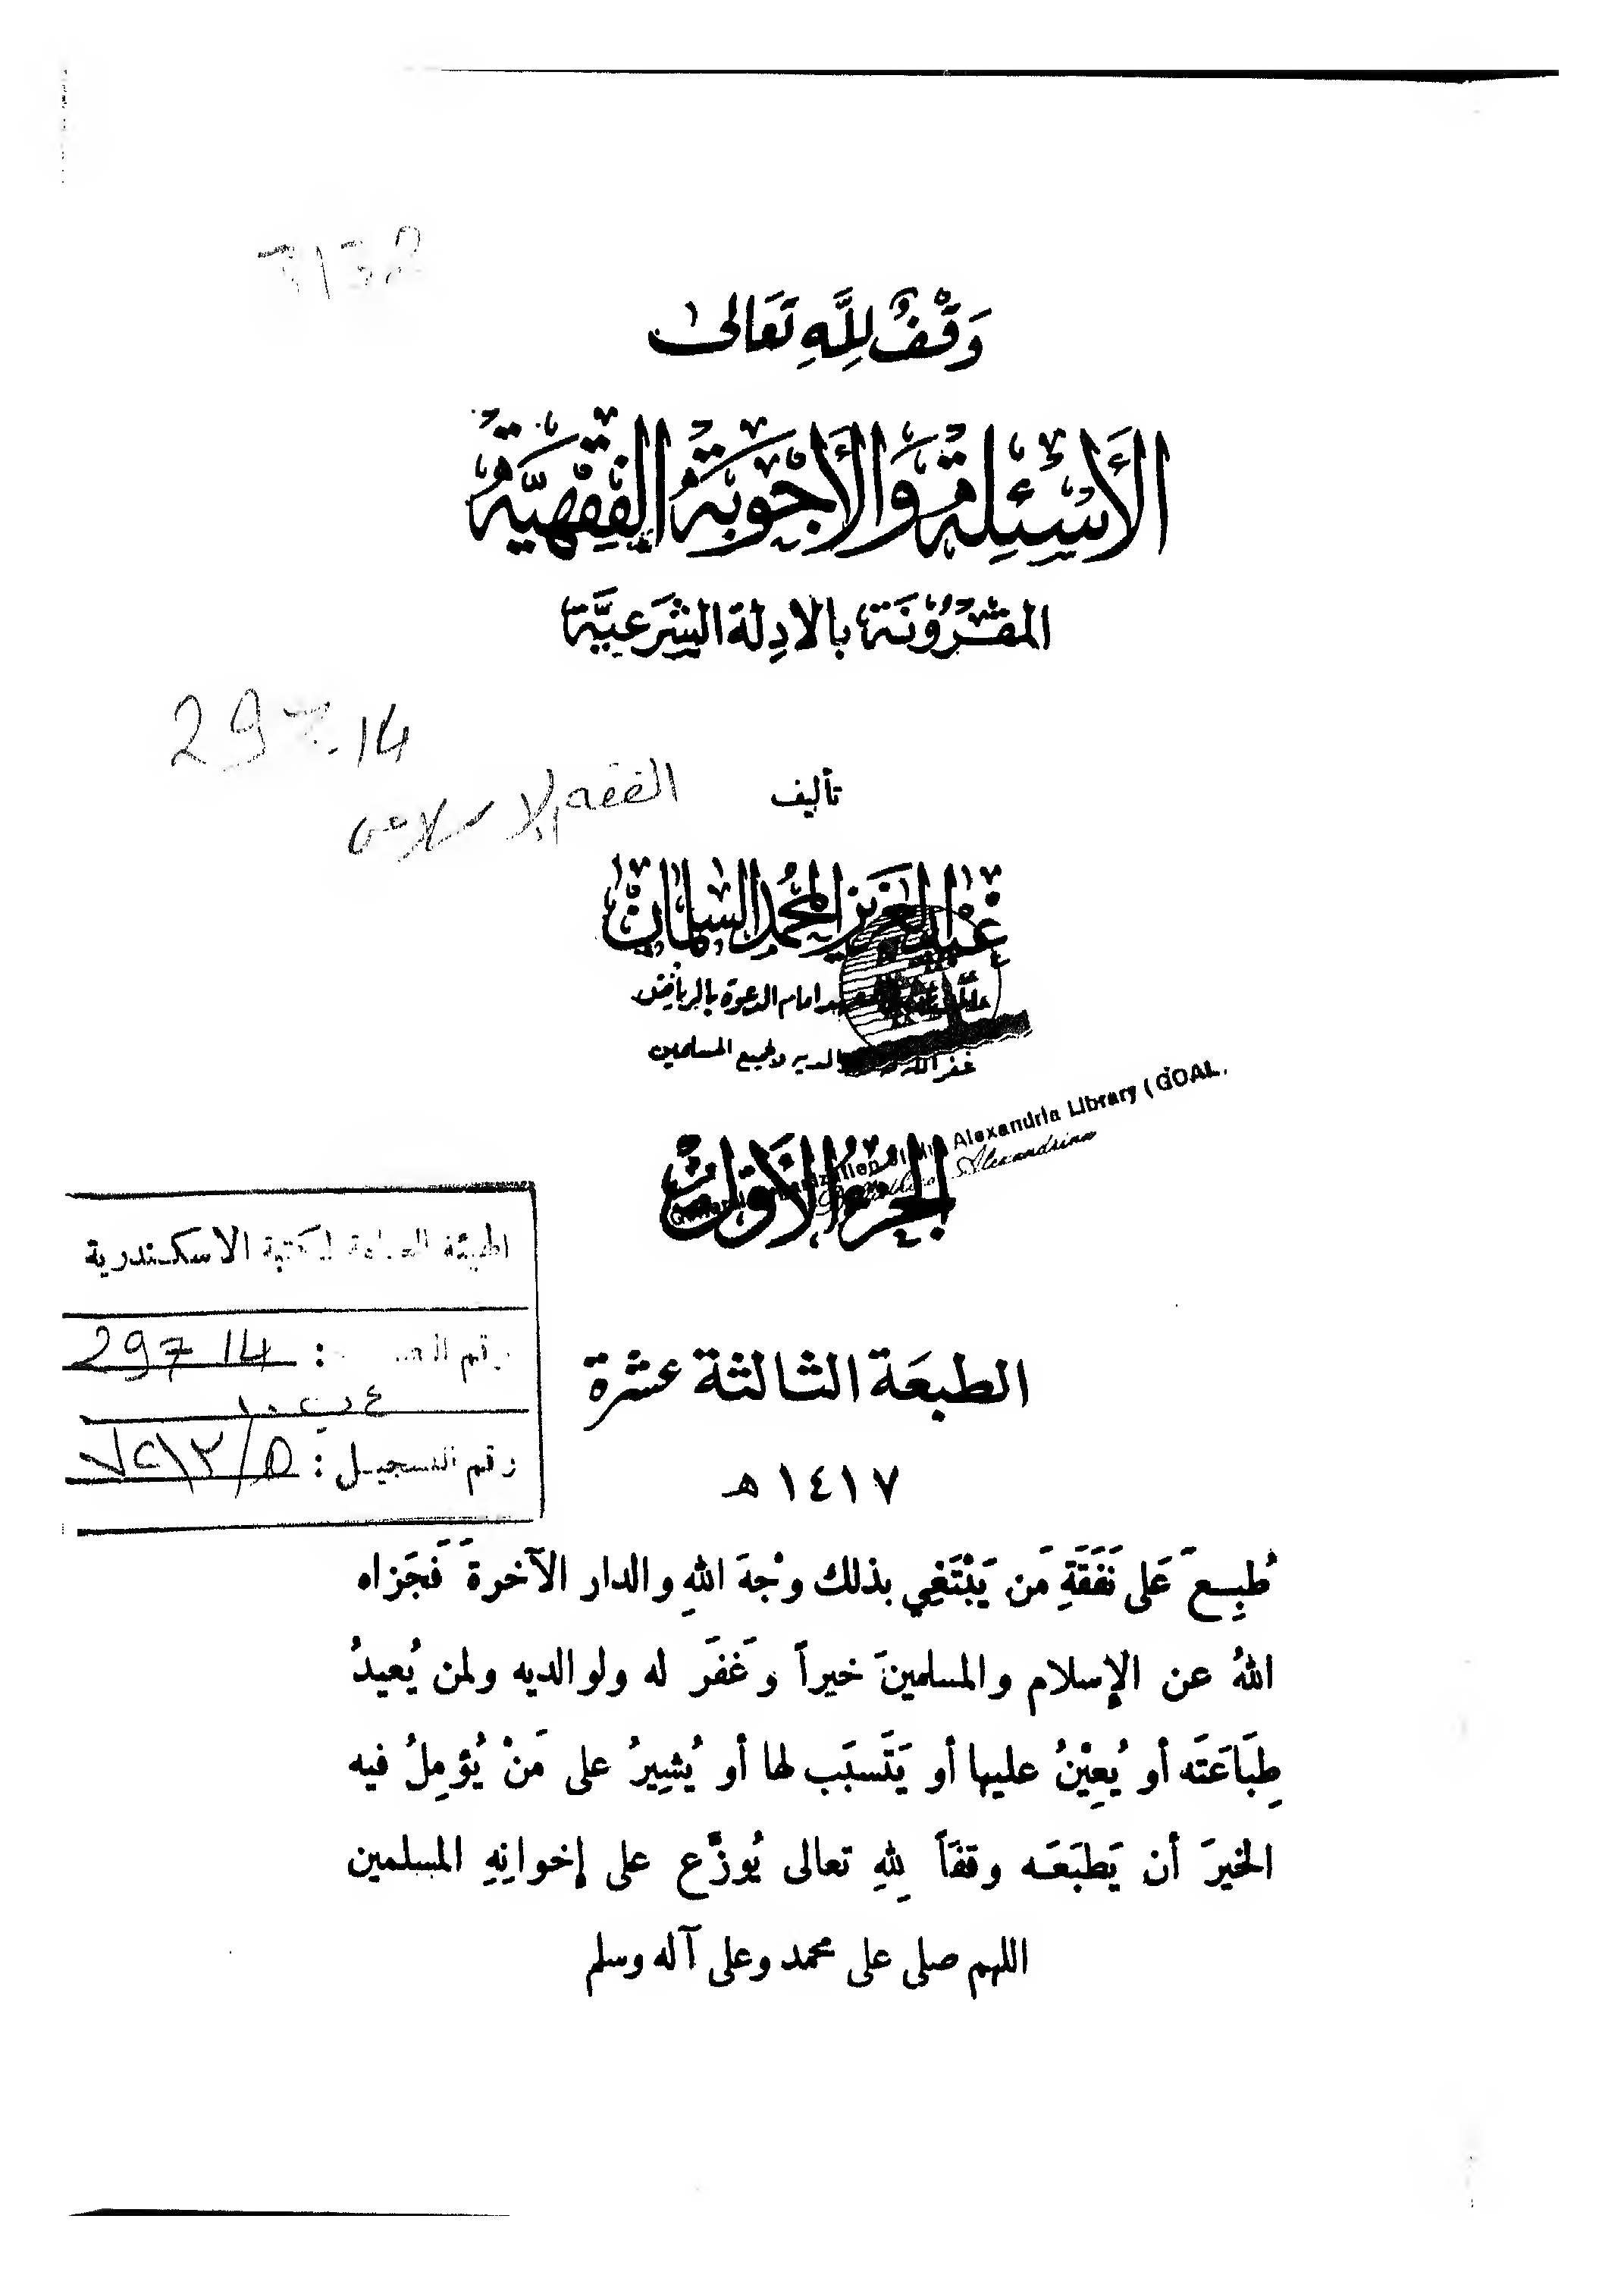 وَقْفٌ لِلَّهِ تَعَالَى
الأَسْئِلَةُ وَالأَجْوِبَةُ الفِقْهِيَّةُ
المَقْرُوْنَةُ بالادِلة الشَرعيَّة
297.14
الفقه الاسلامى
تأليف
عَبْد العَزيز المحمَّد السلمان
امام الدعوة بالرياض
غفر الله والديه ولجميع المسلمين
Alexandria Library (GOAL
Alexandrina
الجُزءُ الأوّلُ
الهيئة العامة لمكتبة الاسكندرية
رقم : 297 14
رقم التسجيل :
الطبعَة الثالثة عشرة
١٤١٧ هـ
طُبِعَ عَلى نَفَقَةِ مَن يَبْتَغِي بذلك وجْهَ اللهِ والدار الآخرةَ فَجَزاه
اللهُ عن الإسلام والمسلمينَ خيراً وَغَفَرَ له ولوالديه ولمن يُعيدُ
طِبَاعَتَه أو يُعِيْنُ عليها أو يَتَسبَب لها أو يُشِيرُ على مَنْ يُؤمِلُ فيه
الخيرَ أن يَطبَعَه وقفَاً لِلهِ تعالى يُوزَّع على إخوانِهِ المسلمين
اللهم صلى على محمد وعلى آله وسلم